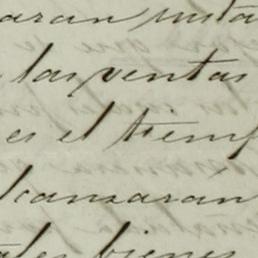 aran justa
las ventas
es el tiemp
lcanzaran
tales bienes